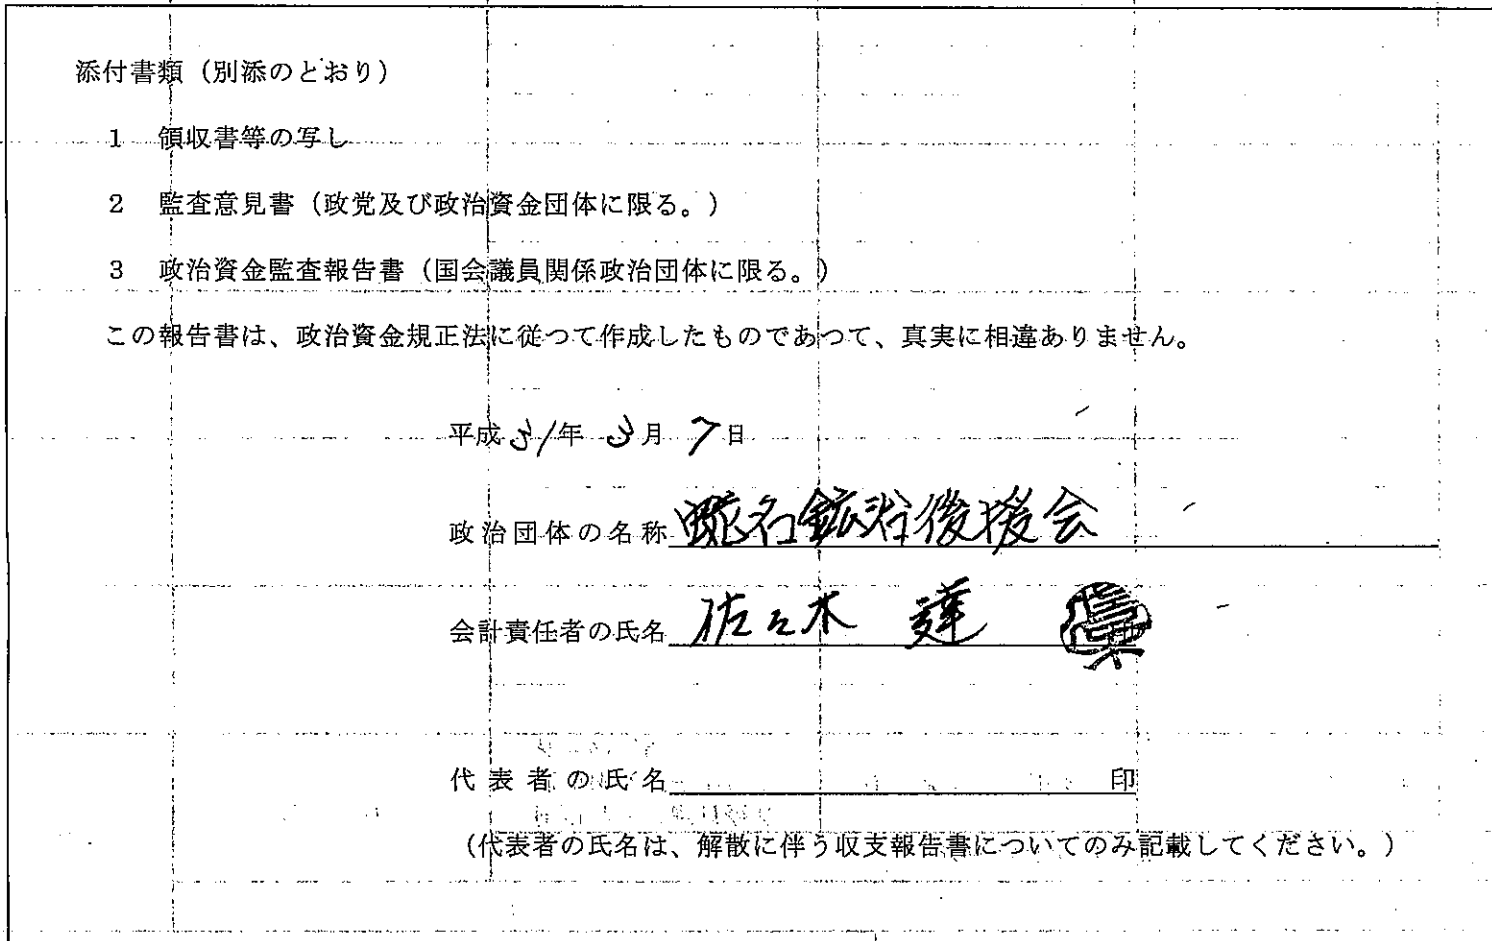 添付書類（別添のとおり）
1 領収書等の写し
2 監査意見書（政党及び政治資金団体に限る。）
3 政治資金監査報告書（国会議員関係政治団体に限る。）
この報告書は、政治資金規正法に従つて作成したものであつて、真実に相違ありません。
平成31年 3月 7日
政治団体の名称 名鉱後援会
会計責任者の氏名 佐々木 達
代表者の氏名 印
（代表者の氏名は、解散に伴う収支報告書についてのみ記載してください。）